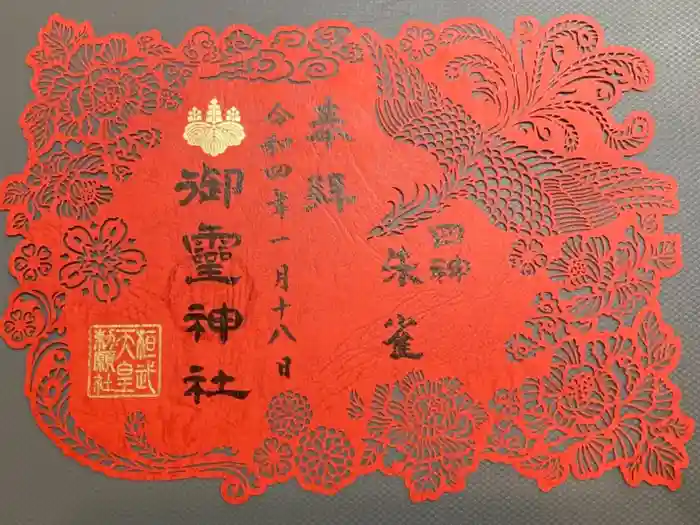 奉拝
四神
朱雀
令和四年一月十八日
御靈神社
桓武
天皇
勅願社